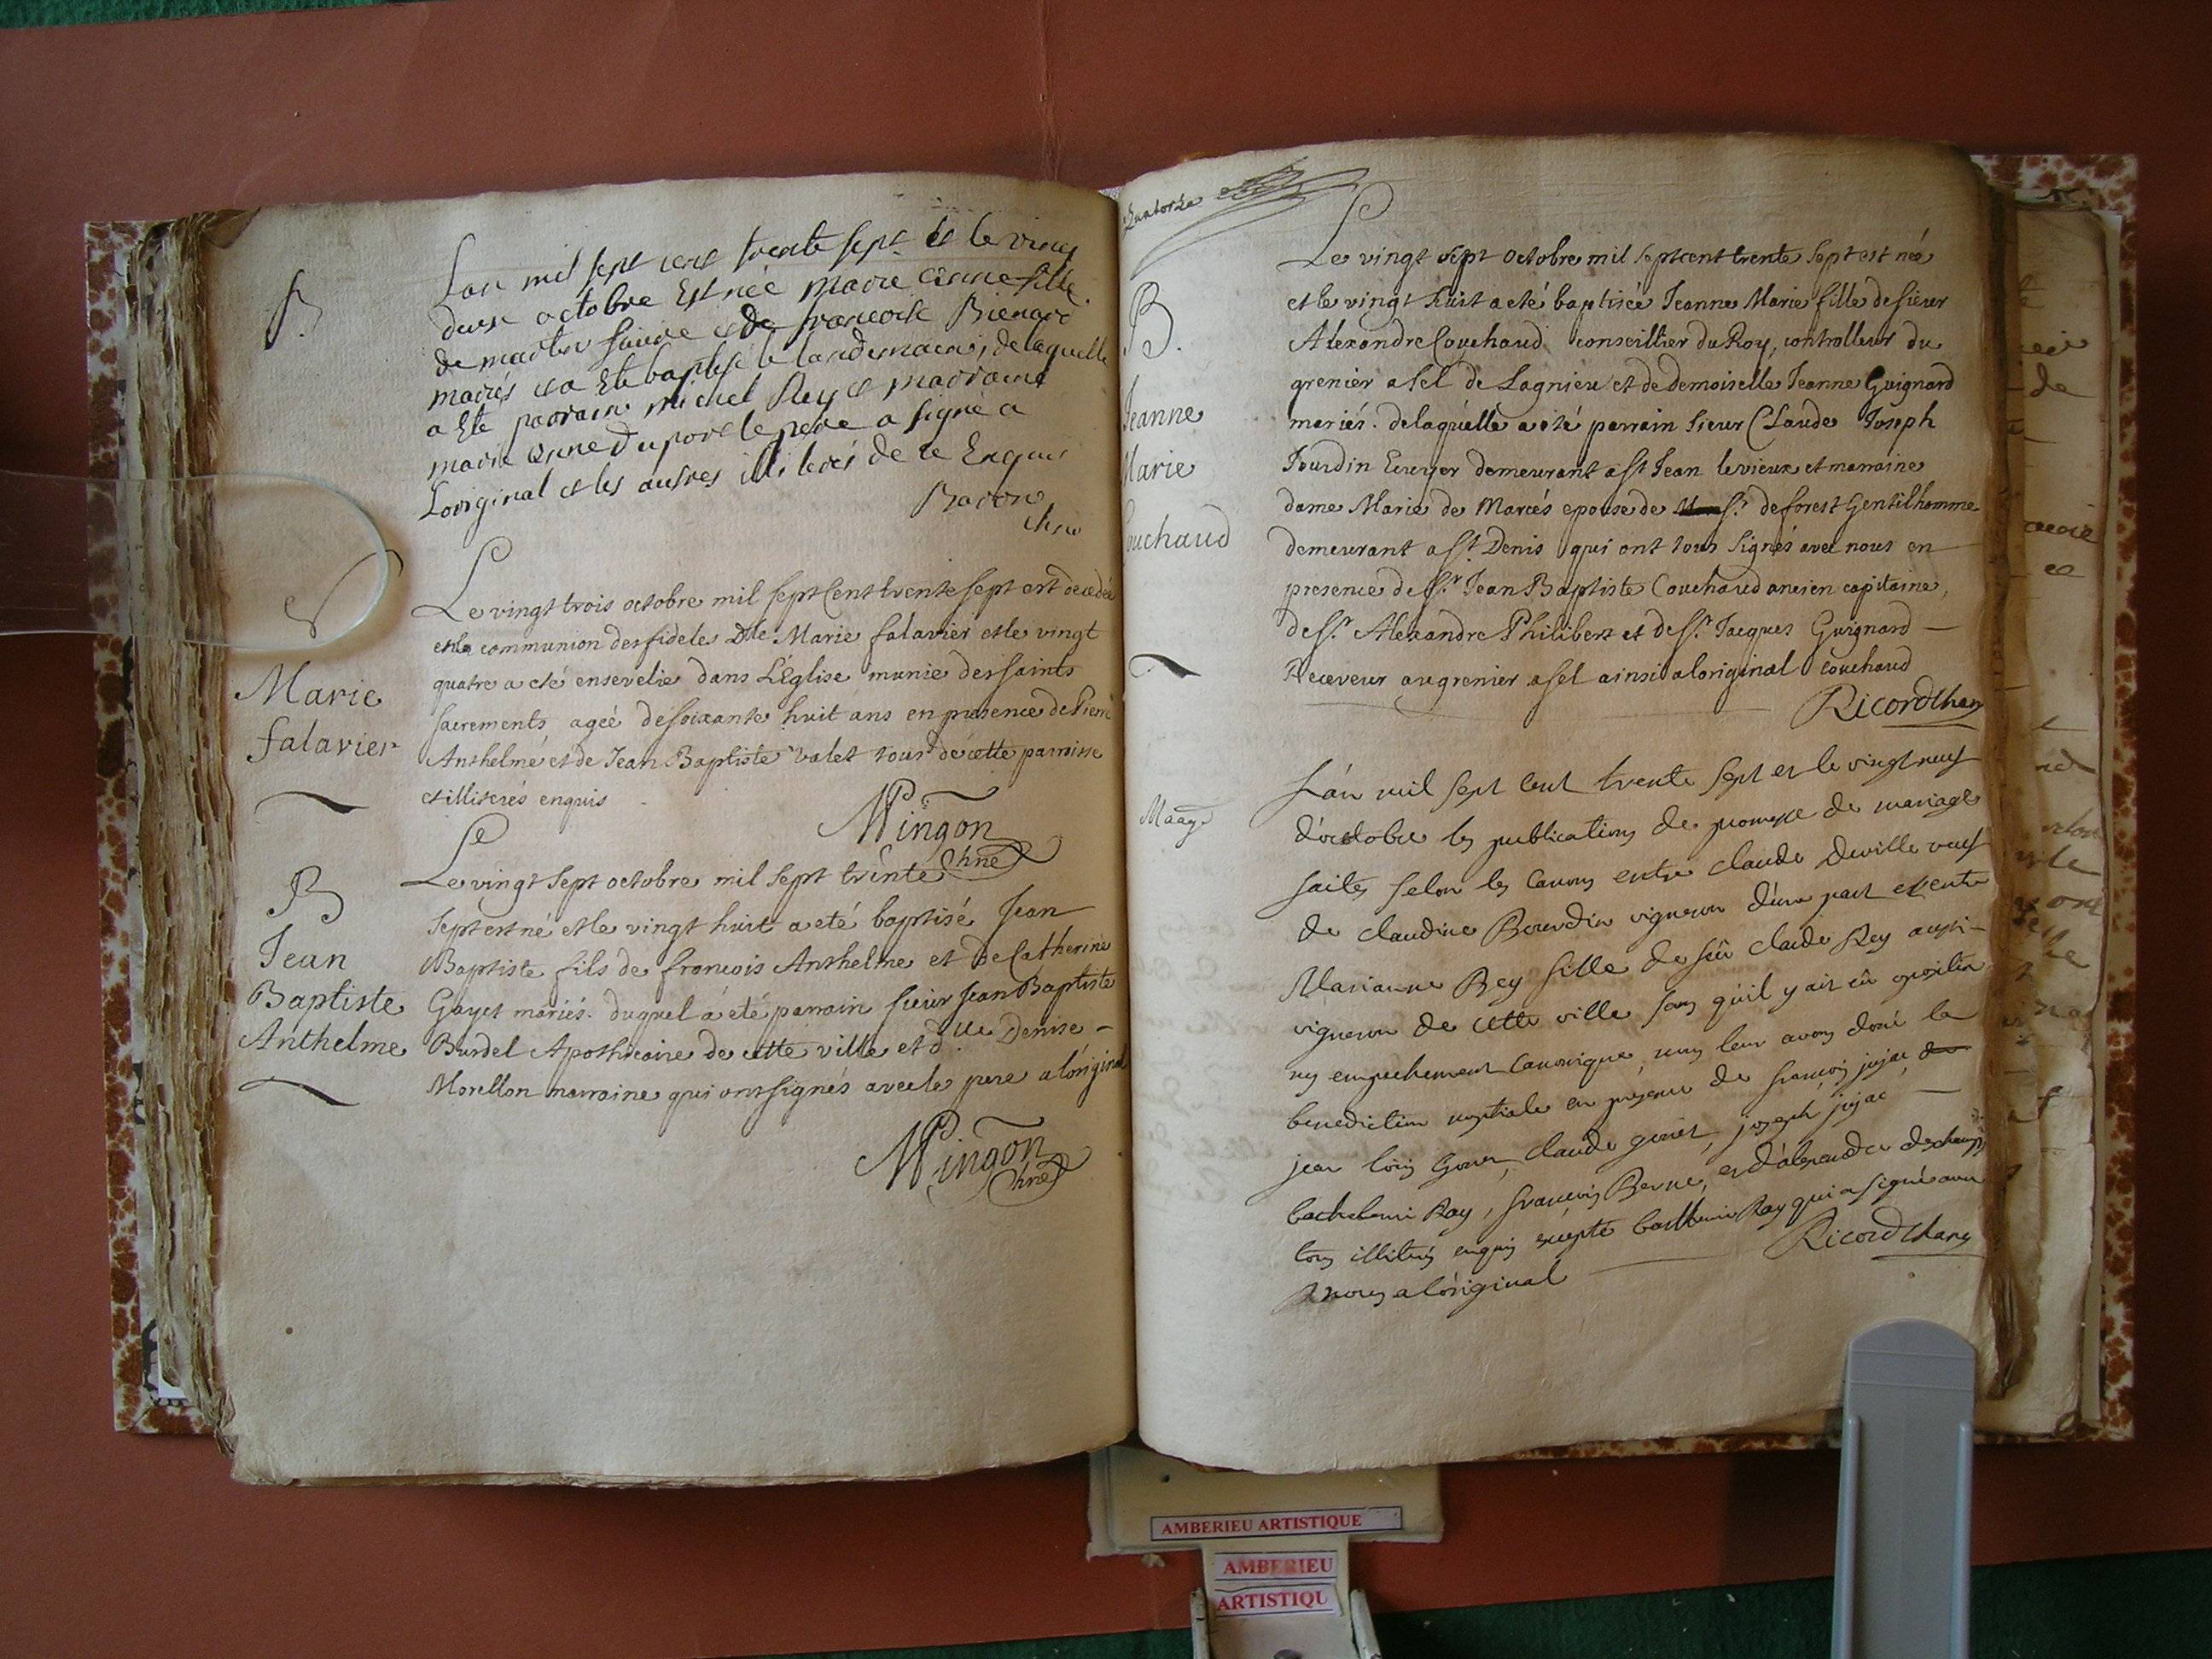 B.
L'an mil sept cent trente sept et le vingt
deux octobre Est née marie anne fille
de martin faivre et de francoise Bienard
mariés et a Eté baptisé le landemain, de laquelle
a Eté parrain michel Rey et marraine
marie Anne Duport le pere a signé a
Loriginal et les autres illiterés de ce Enquis
Marie
falavier
Le vingt trois octobre mil sept Cent trente sept est decedée
en la communion des fideles Dlle Marie falavier et le vingt
quatre a eté ensevelie dans L'Eglise munie des saints
sacrements, ageé de soixante huit ans en presence de Pierre
Anthelme et de Jean Baptiste valet tous de cette parroisse
et illiterés enquis
Mingon
Chne
B
Jean
Baptiste
Anthelme
Le vingt sept octobre mil sept trente
sept est né et le vingt huit a eté baptisé Jean
Baptiste fils de francois Anthelme et de Catherine
Gayet mariés. duquel a été parrain sieur Jean Baptiste
Burdel Apothicaire de cette ville et dlle Denise
Morellon marraine qui ont signés avec le pere a l'original
Mingon
Chne
quatorze
B.
Jeanne
Marie
Couchaud
Le vingt sept octobre mil sept cent trente sept est née
et le vingt huit a eté baptisée Jeanne Marie fille de sieur
Alexandre Couchaud conseillier du Roy, controlleur du
grenier a sel de Lagnieu et de demoiselle Jeanne Guignard
mariés. de laquelle a eté parrain sieur Claude Joseph
Jourdin Ecuyer demeurant a st Jean le vieux et marraine
dame Marie de Marcés epouse de sr. deforest Gentilhomme
demeurant a st Denis qui ont tous signés avec nous en
presence de sr. Jean Baptiste Couchaud ancien capitaine,
de sr. Alexandre Philibert et de sr. Jacques Guignard
Receveur au grenier a sel ainsi a loriginal Couchaud
Ricord Chane
Maage
L'an mil sept cent trente sept et le vingt neuf
d'octobre les publications de promesse de mariage
faites selon les Canons entre Claude Deville veuf
de Claudine Bourdin vigneron d'une part et entre
Marianne Rey fille de feû Claude Rey aussi
vigneron de cette ville sans qu'il y ait eû oposition
ny empechement Canonique, nous leur avons doné la
benediction nuptiale en presence de françois jujac,
jean Loüis Goner, Claude goner, joseph jujac
barthelemi Ray, françois Berne, et d'alexandre deschamps
tous illiterés enquis excepté barthelemi Ray qui a signé avec
nous a l'original
Ricord Chane
AMBERIEU ARTISTIQUE
AMBERIEU
ARTISTIQU